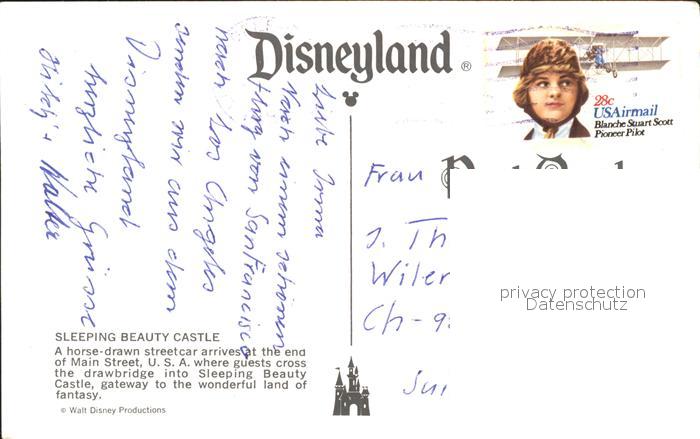 Disneyland®
28c
USAirmail
Blanche Stuart Scott
Pioneer Pilot
Liebe Irma
Nach einem schönen
Flug von San Francisco
nach Los Angeles
senden wir aus dem
Disneyland
herzliche Grüsse
Walter
Frau
J. Th
Wiler
Ch-9
privacy protection
Datenschutz
SLEEPING BEAUTY CASTLE
A horse-drawn streetcar arrives at the end
of Main Street, U. S. A. where guests cross
the drawbridge into Sleeping Beauty
Castle, gateway to the wonderful land of
fantasy.
© Walt Disney Productions